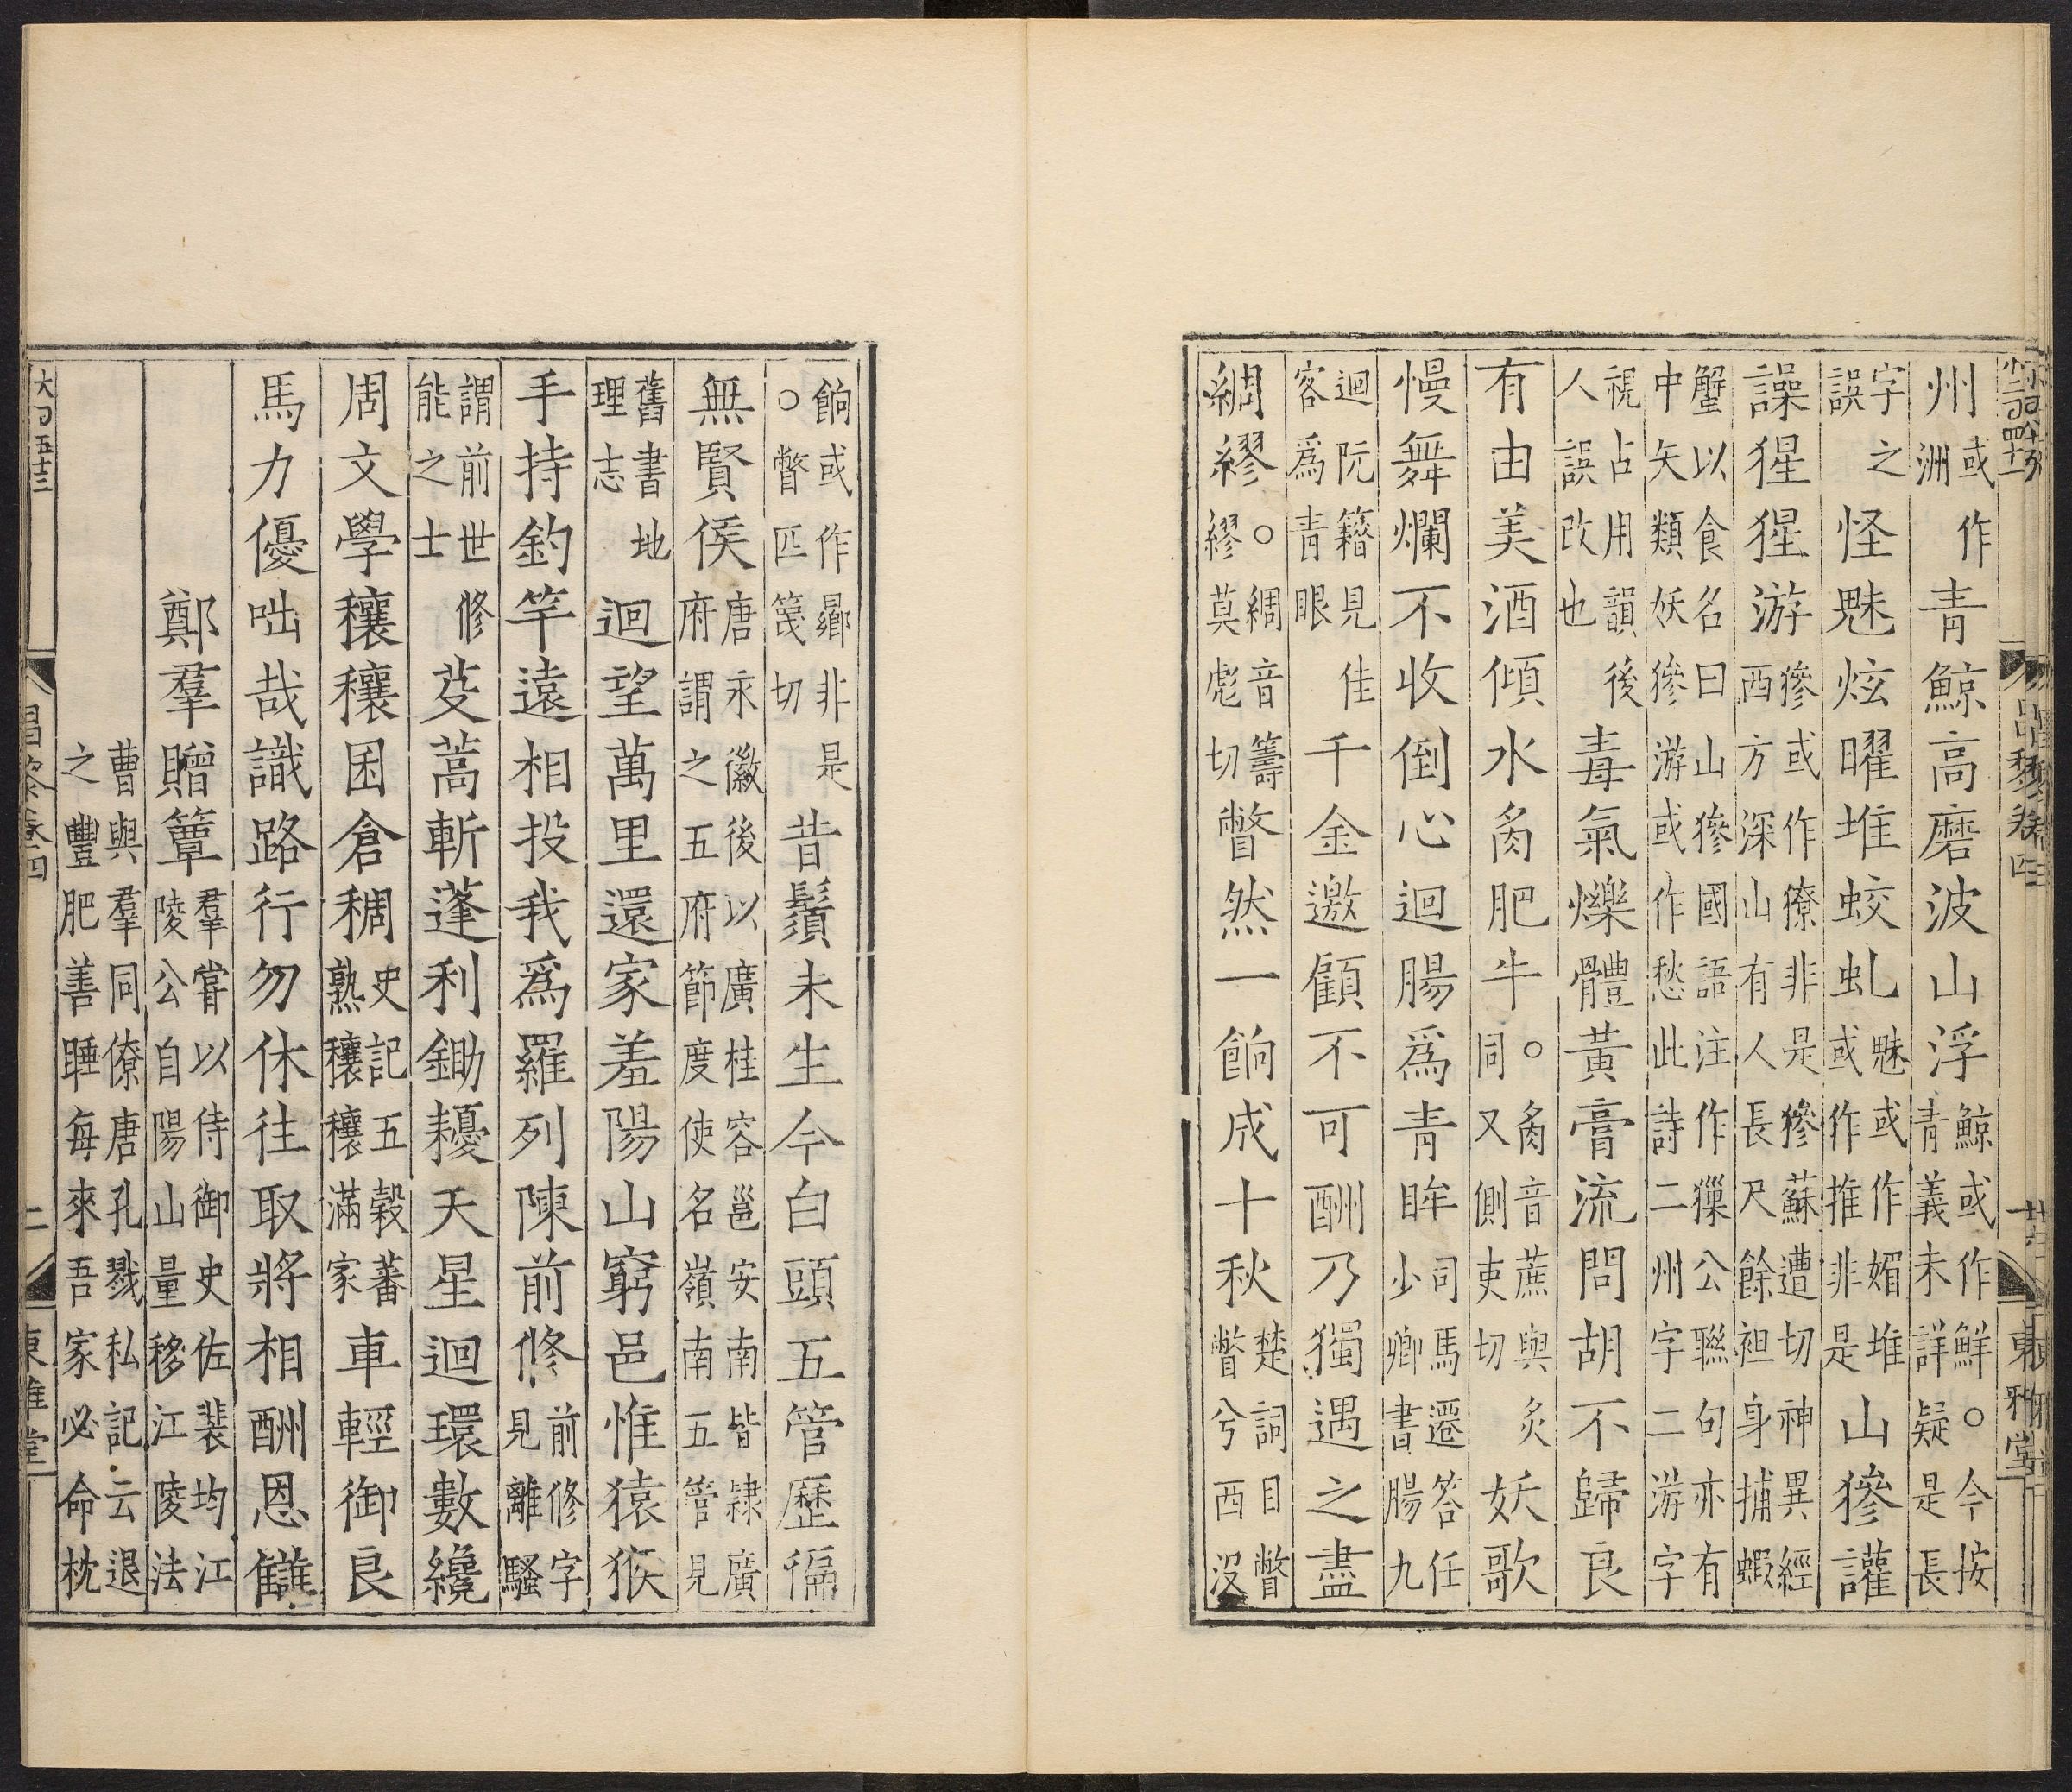 州或作洲青鯨高磨波山浮鯨或作鮮○今按青義未詳疑是長
字之誤怪魅炫曜堆蛟虬魅或作媚堆或作推非是山㺑讙
譟猩猩游㺑或作獠非是㺑蘇遭切神異經西方深山有人長尺餘袒身捕蝦
蟹以食名曰山㺑國語注作獋公聯句亦有中矢類妖㺑游或作愁此詩二州字二游字
視占用韻後人誤改也毒氣爍體黃膏流問胡不歸良
有由美酒傾水肥牛○音蔗與炙同又側吏切妖歌
慢舞爛不收倒心迴腸爲青眸司馬遷答任少卿書腸九
迴阮籍見佳客爲青眼千金邀顧不可酬乃獨遇之盡
綢繆○綢音籌繆莫彪切瞥然一餉成十秋楚詞目瞥瞥兮西没
餉或作曏非是○瞥匹篾切昔鬚未生今白頭五管歷徧
無賢侯唐永徽後以廣桂容邕安南皆隸廣府謂之五府節度使名嶺南五管見
舊書地理志迴望萬里還家羞陽山窮邑惟猿猴
手持釣竿遠相投我爲羅列陳前修前修字見離騷
謂前世修能之士芟蒿斬蓬利鋤耰天星迴環數纔
周文學穰穰囷倉稠史記五穀蕃熟穰穰滿家車輕御良
馬力優咄哉識路行勿休往取將相酬恩讎
鄭羣贈簟羣嘗以侍御史佐裴均江陵公自陽山量移江陵法
曹與羣同僚唐孔戣私記云退之豐肥善睡每來吾家必命枕
昌黎卷四
東雅堂